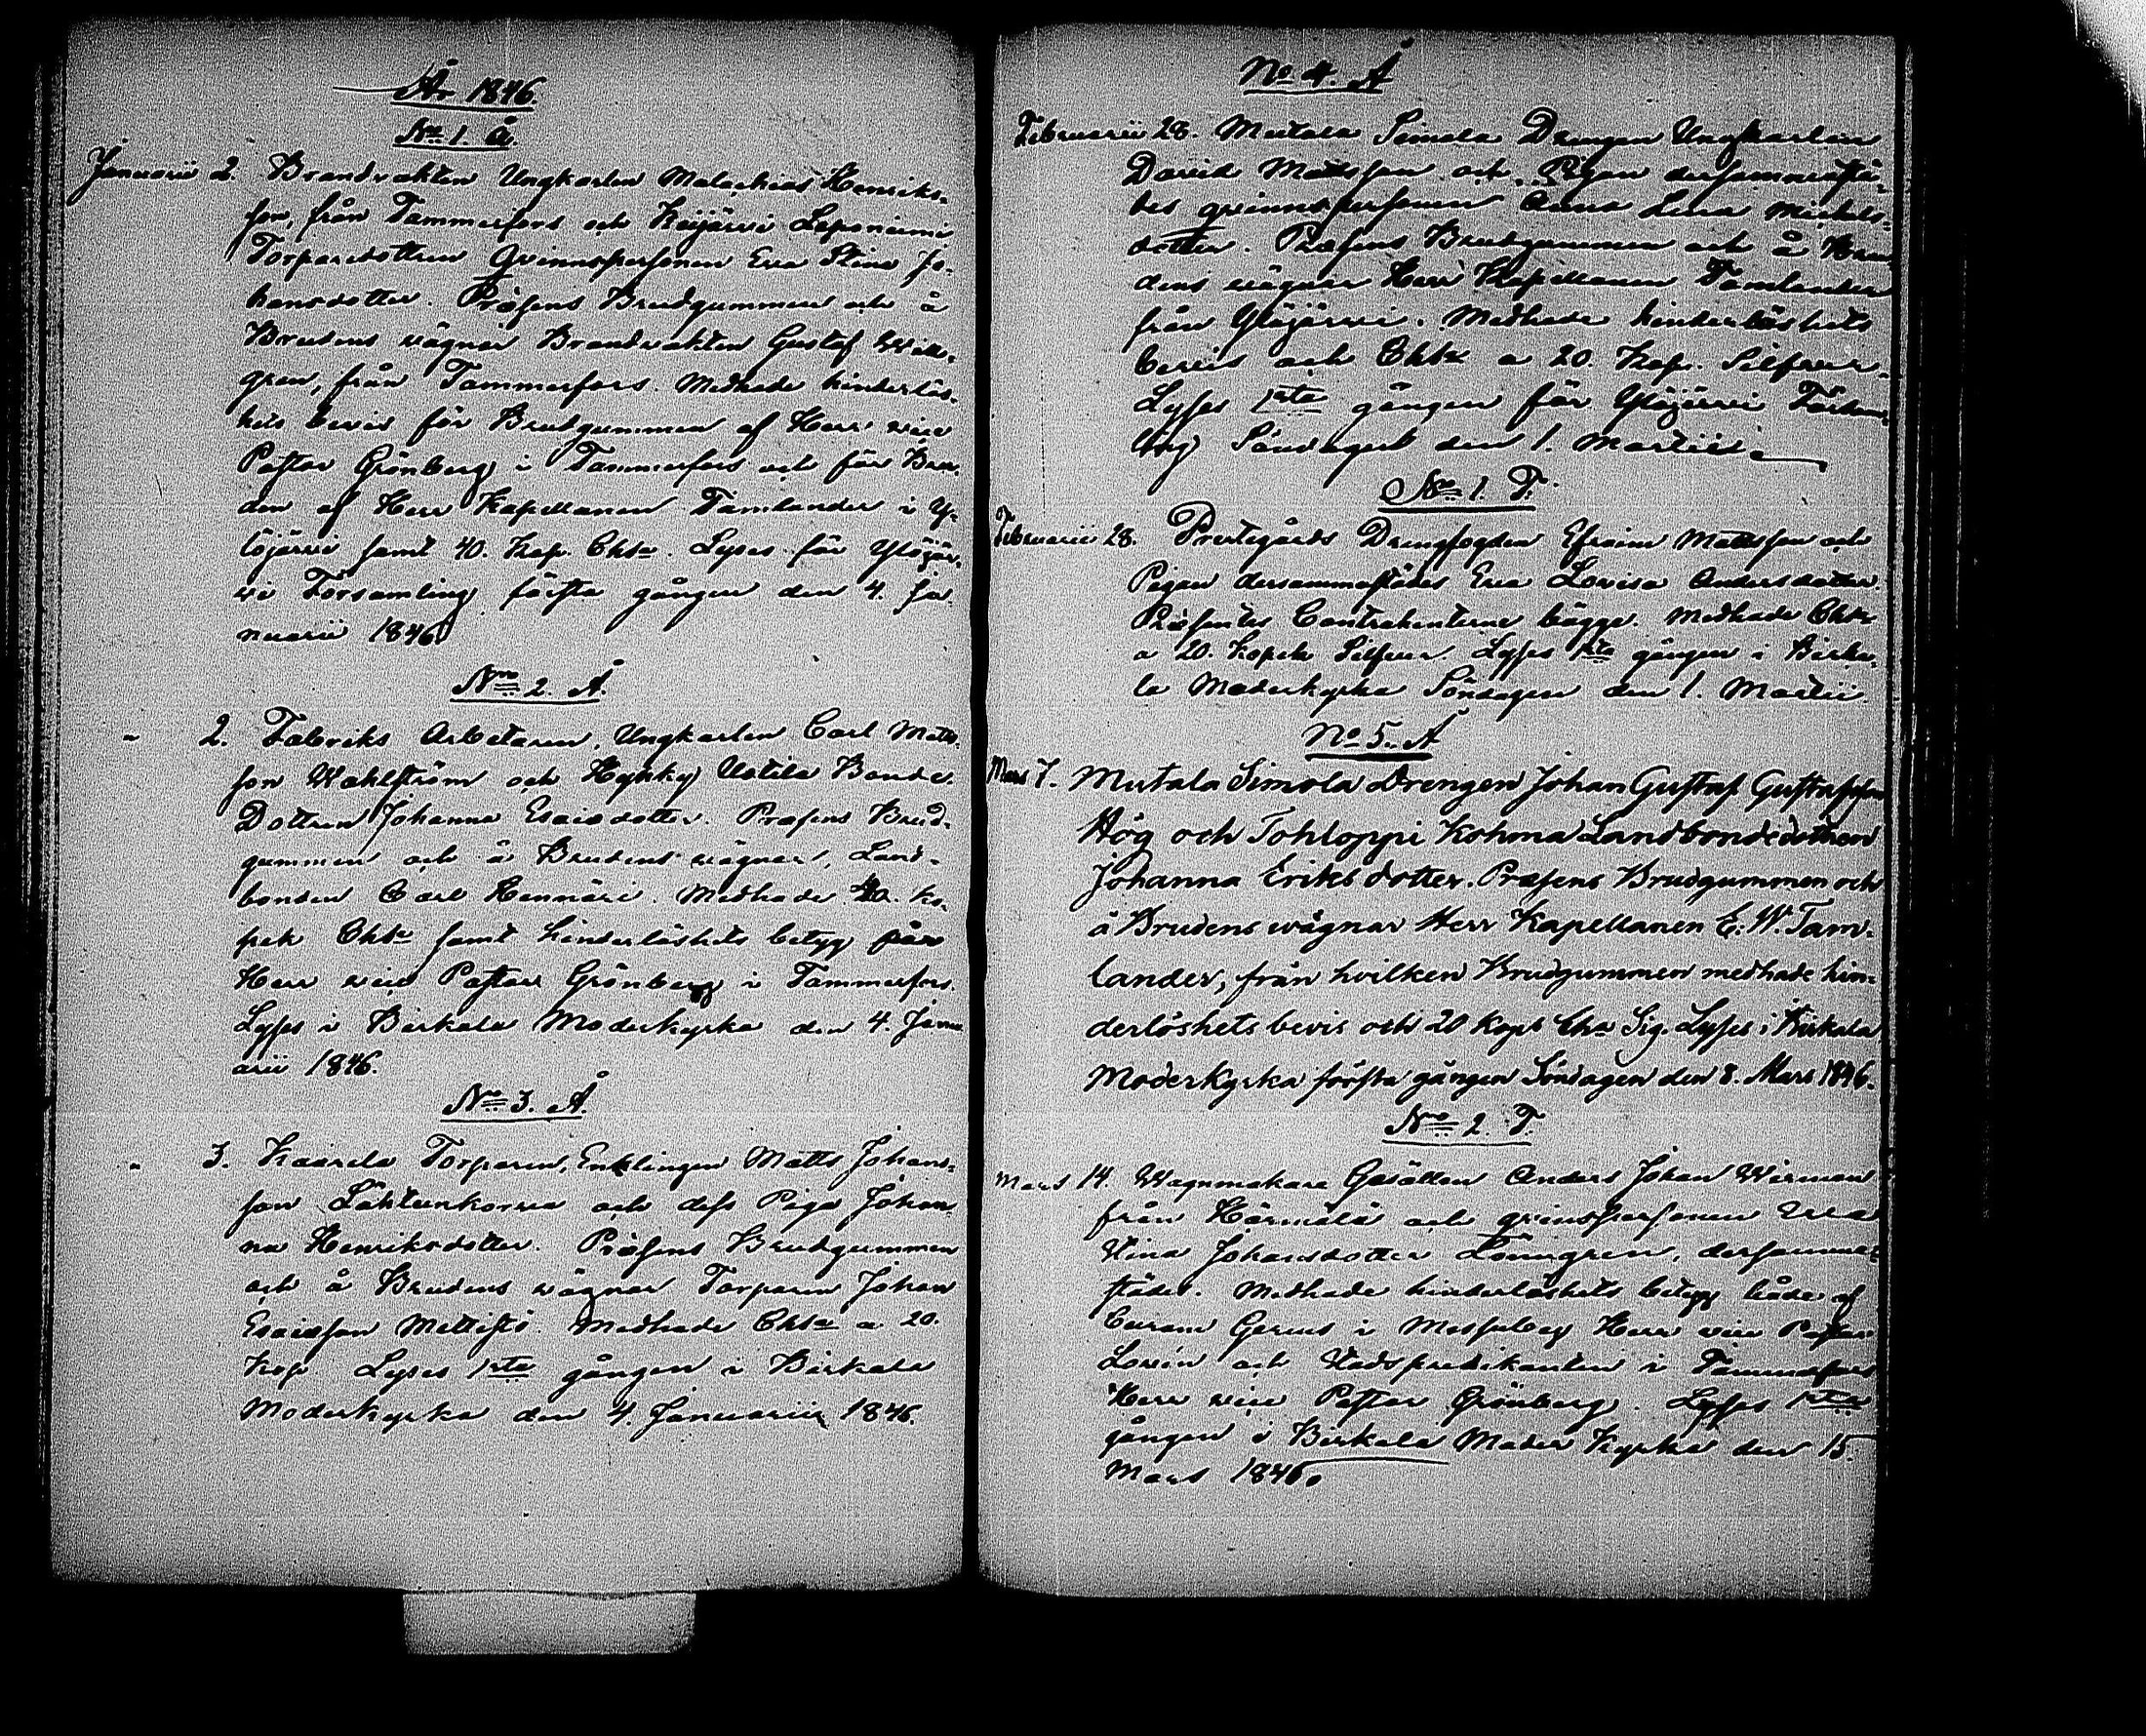 År 1846.
No 1. Å.
Januarii 2. Brandvakten Ungkarlen Malachias Henriks-
son, från Tammerfors och Keijärvi Leponiemi
Torparedottren Qvinnspersonen Eva Stina Jo-
hansdotter. Præsens Brudgummen och å
Brudens vägnar Brandvakten Gustaf
gren, från Tammerfors. Medhade hinderlös-
hets bevis för Brudgummen af Herr vice
Pastor Grönberg i Tammerfors och för Bru-
den af Herr Kapellanen Tamlander i Y-
löjärvi samt 40. Kop. Chta. Lyses för Ylöjär-
vi Församling första gången den 4. Ja-
nuarii 1846
No 2. Å.
" 2. Fabriks Arbetaren, Ungkarlen Carl Matts-
son Wahlström och Hyhky Uotila Bonde-
Dottren Johanna Esaiadotter. Præsens Brud-
gummen och å Brudens vägnar, Land-
bonden Carl Hennäri. Medhade Ko-
pek Chta samt hinderlöshets betyg från
Herr vice Pastor Grönberg i Tammerfors.
Lyses i Birkala Moderkyrka den 4. Janu-
arii 1846.
No 3. Å.
" 3. Kaarela Torparen, Enklingen Matts Johans-
son Lähteenkorva och dess Piga Johan-
na Henriksdotter. Præsens Brudgummen
och å Brudens vägnar Torparen Johan
Esaiasson Mettistö. Medhade Chta a 20.
Kop. Lyses 1sta gången i Birkala
Moderkyrka den 4. Januarii 1846.
No 4. Å
Februarii 28. Mutala Simola Drengen Ungkarlen
David Mattsson och Pigan dersammastä-
des qvinnspersonen Anna Lena Michels-
dotter. Præsens Brudgummen och å Bru-
dens vägnar Herr Kapellanen Tamlander
från Ylöjärvi. Medhade hinderlöshets
bevis och Chta a 20. Kop. Silfver.
Lyses 1sta gången för Ylöjärvi Försam-
ling Söndagen den 1. Martii.
No 1. T.
Februarii 28. Prestegårds Drengfogden Efraim Mattsson och
Pigan dersammastädes Eva Lovisa Andersdotter.
Præsentes Contrahenterne bägge. Medhade Chta
a 20. Kopek Silfver. Lyses 1sta gången i Birka-
la Moderkyrka Söndagen den 1. Martii.
No 5. Å
Mars 7. Mutala Simola Drengen Johan Gustaf Gustafsson
Hög och Tohloppi Kohma Landbondedottren
Johanna Eriksdotter. Præsens Brudgummen och
å Brudens wägnar Herr Kapellanen E. W. Tam-
lander, från hvilken Brudgummen medhade hin-
derlöshets bevis och 20 Kop: Cha Sig. Lyses i Birkala
Moderkyrka första gången Söndagen den 8. Mars 1846.
No 2. T.
Mars 14. Wagnmakare Gesällen Anders Johan Wirman
från Härmälä och qvinspersonen
Stina Johansdotter Lönngren, dersamma-
städes. Medhade hinderlöshets betyg både af
Curam Gerens i Messuby Herr vice Pastor
Lovén och Stadspredikanten i Tammerfors
Herr vice Pastor Grönberg. Lyses 1sta
gången i Birkala Moder Kyrka den 15.
Mars 1846.